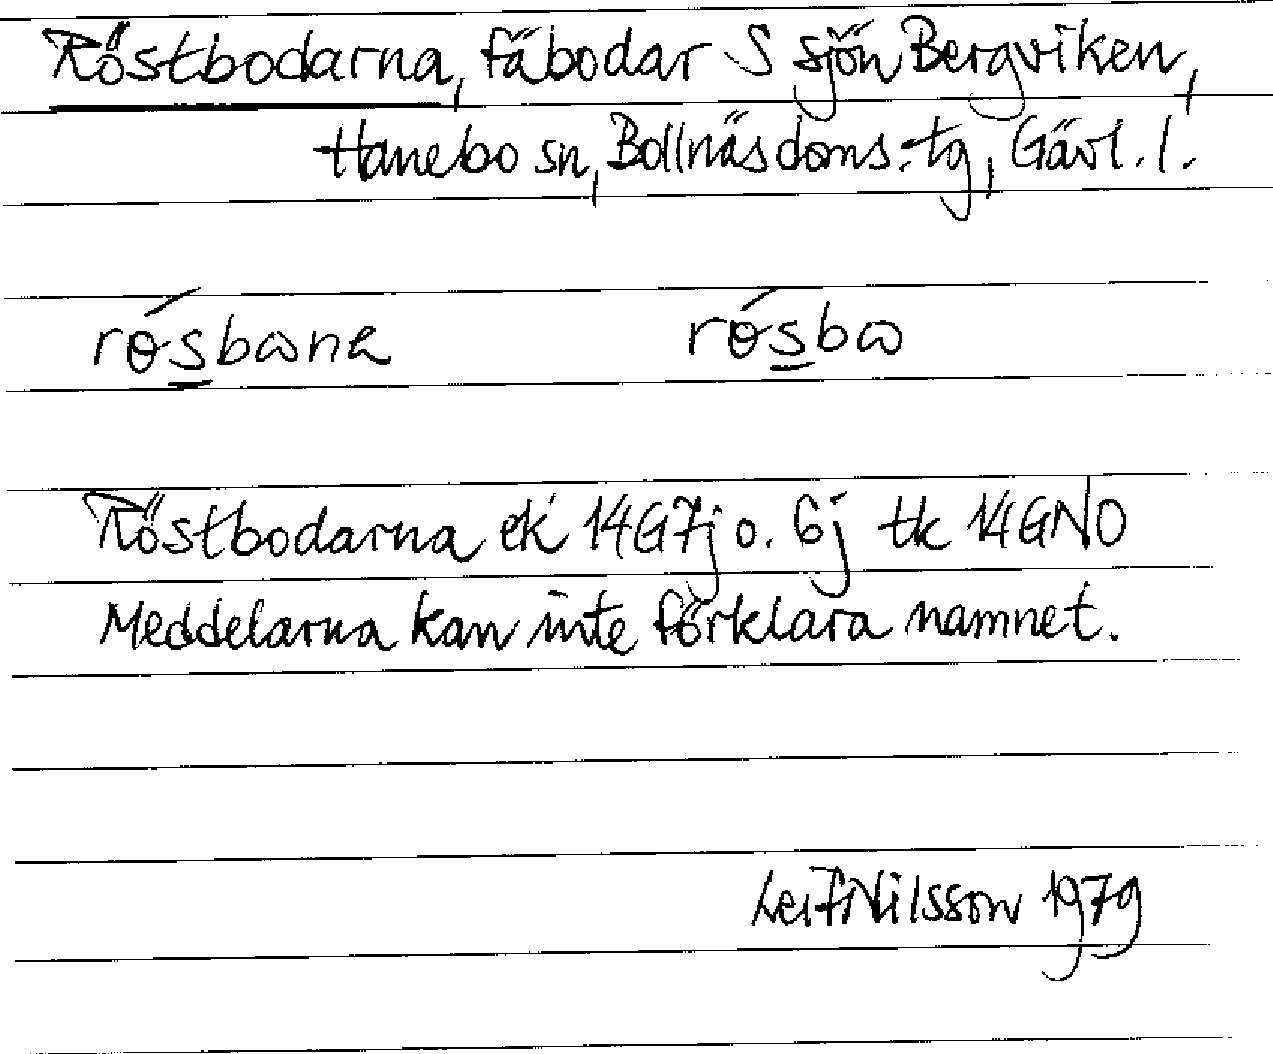 Röstbodarna, fäbodar S sjön Bergviken,
Hanebo sn, Bollnäs doms.tg, Gävl. l.
rɵ́sbωna rɵ́sbω
Röstbodarna ek 14G7j o. 6j tk 14GNO
Meddelarna kan inte förklara namnet.
Leif Nilsson 1979